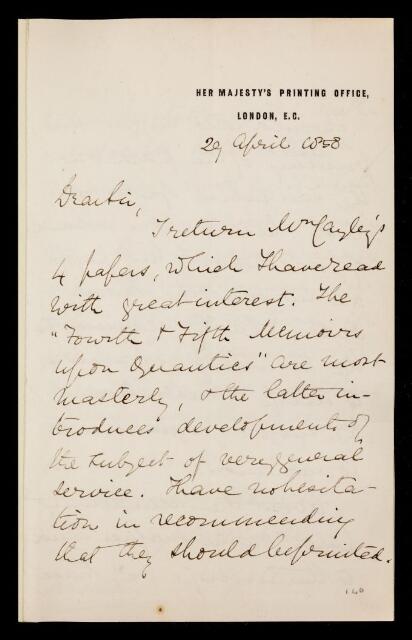 HER MAJESTY'S PRINTING OFFICE,
LONDON, E.C.
29 April 1858
Dear Sir,
I return Mr Cayley's
4 papers, which I have read
with great interest. The
"Fourth & Fifth Memoirs
upon Quantics" are most
masterly, & the latter in-
troduces developments of
the subject of very general
service. I have no hesita-
tion in recommending
that they should be printed.
140